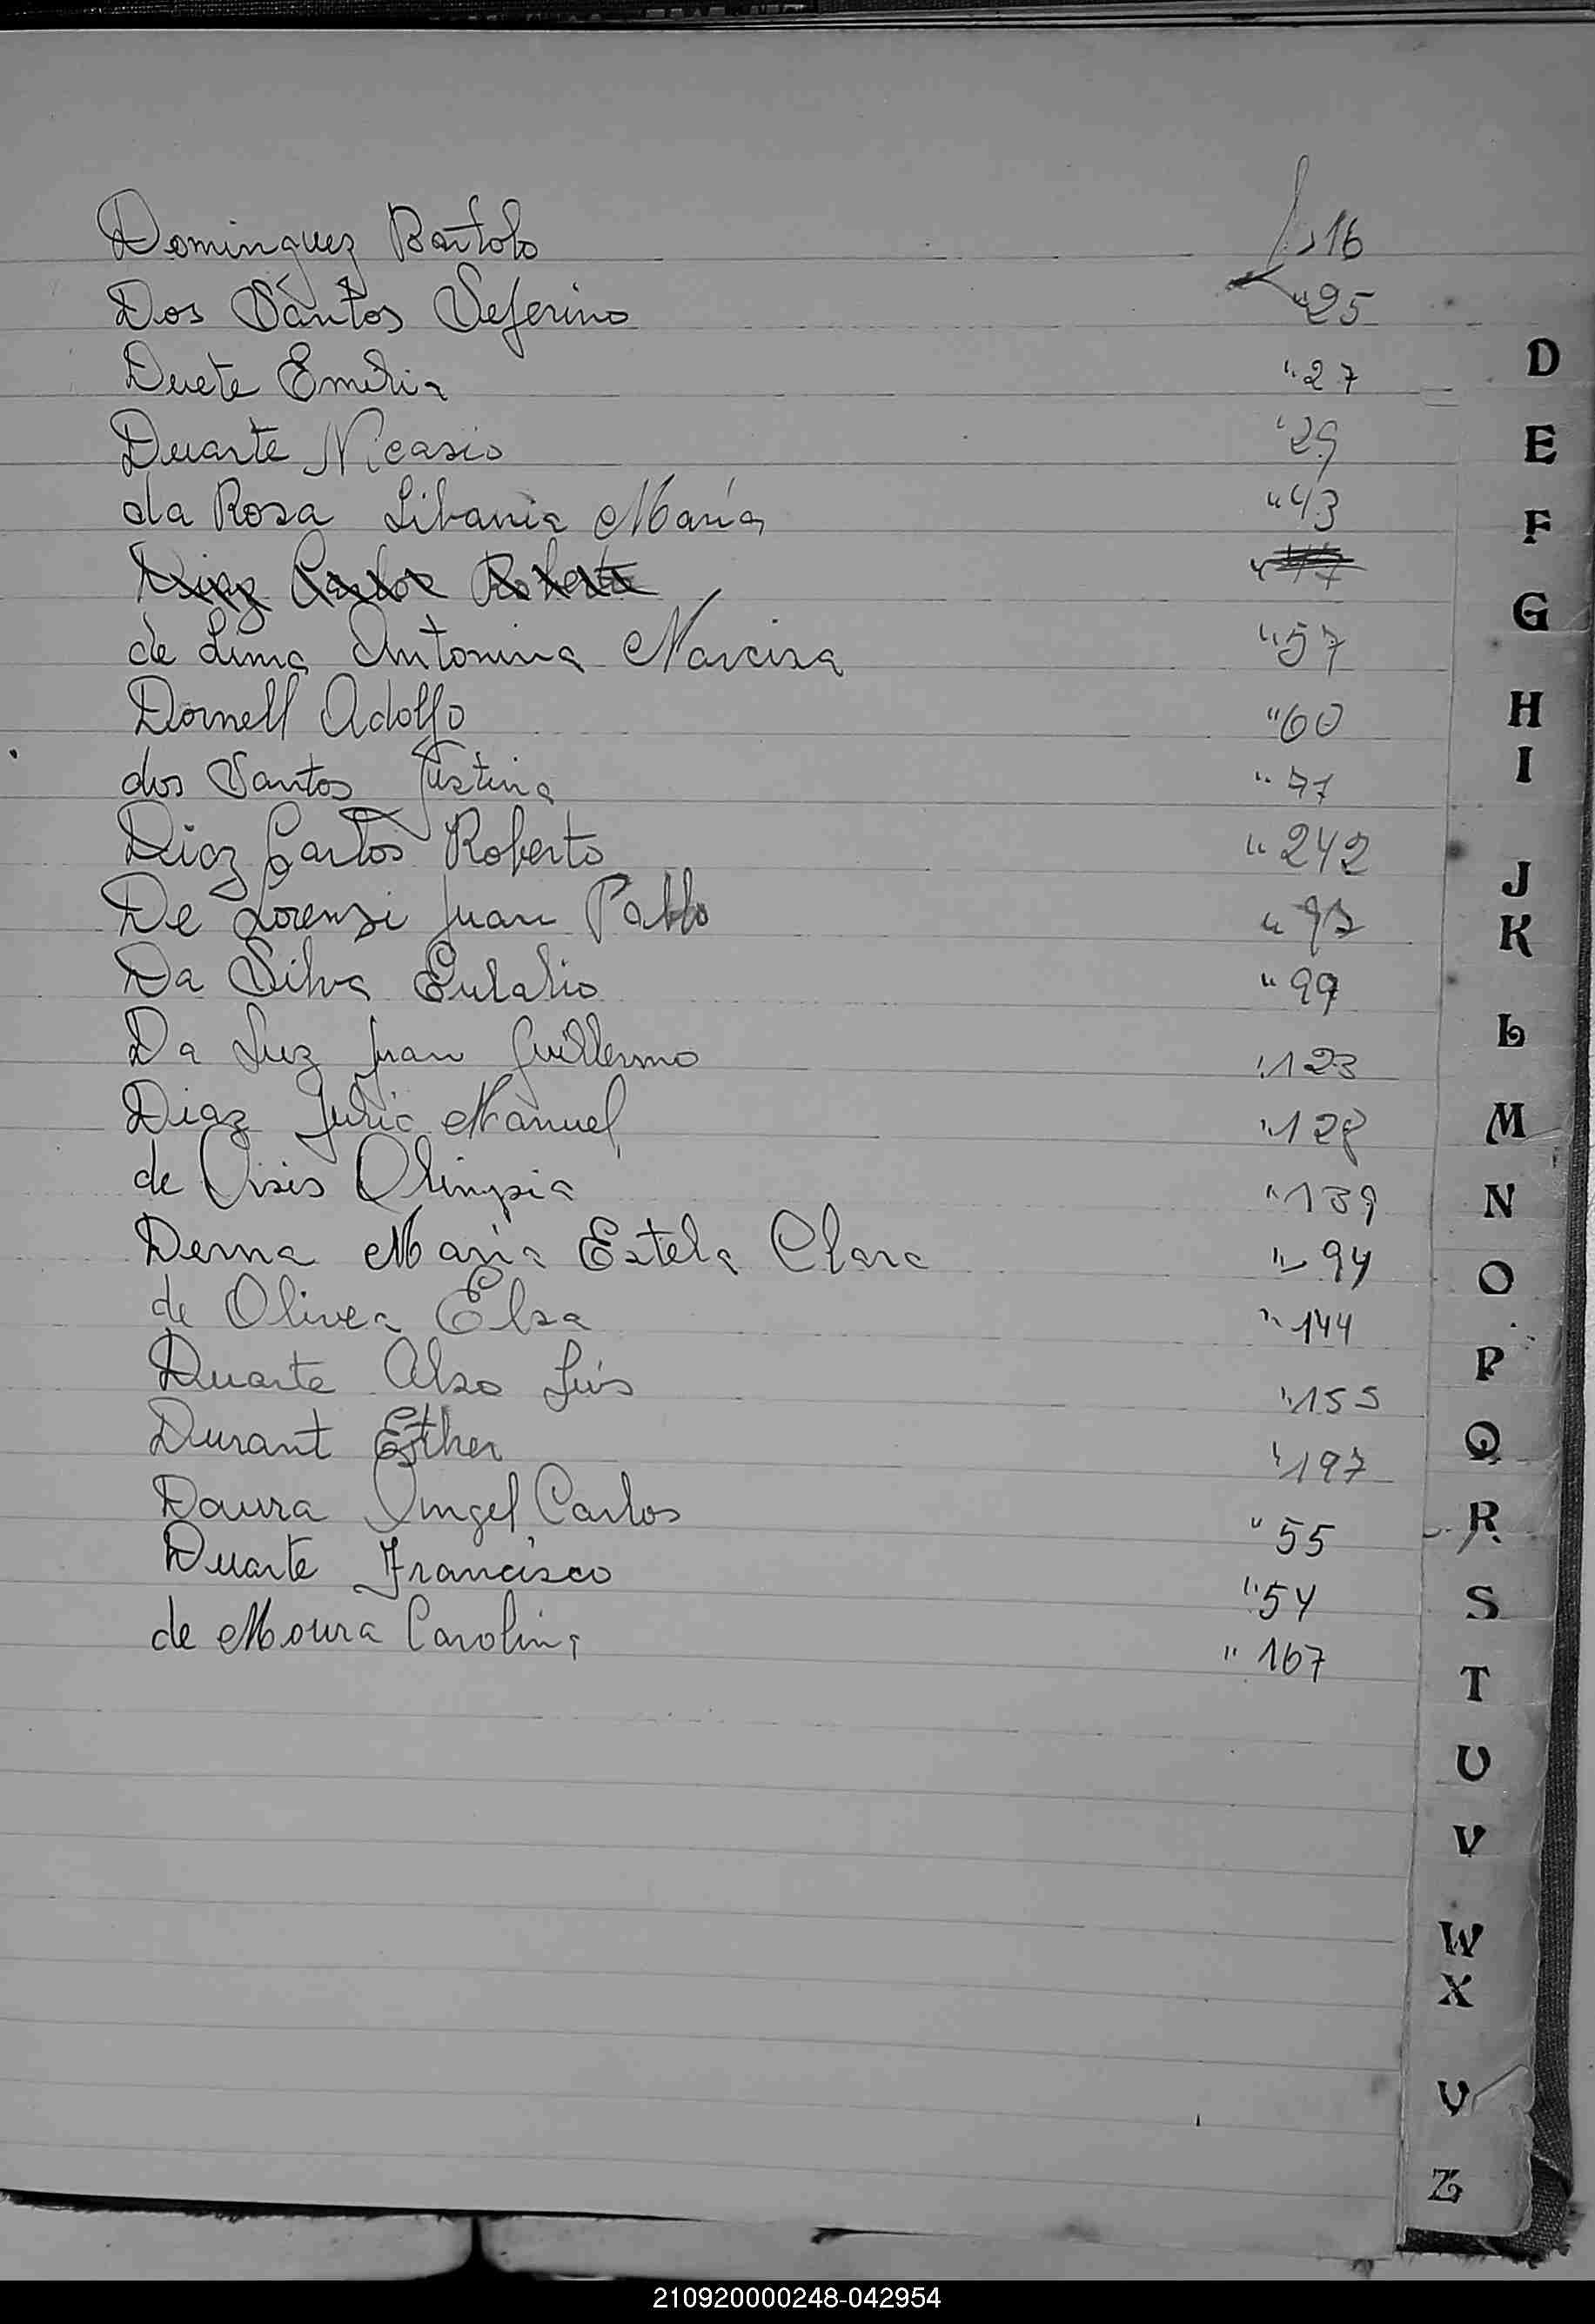 Dominguez Bartolo f. 16
Dos Santos Seferino " 25
Duete Emilia " 27
Duarte Nicasio " 29
da Rosa Libania María " 43
Diaz Carlos Roberto " 47
de Lima Antonina Narcisa " 57
Dornell Adolfo " 60
dos Santos Justina " 77
Diaz Carlos Roberto " 242
De Lorenzi Juan Pablo " 92
Da Silva Eulalio " 99
Da Luz Juan Guillermo " 123
Diaz Julio Manuel " 128
de Olimpia " 139
Derna María Estela Clara " 94
de Olivera Elsa " 144
Duarte Also Luis " 155
Durant Esther " 197
Daura Angel Carlos " 55
Duarte Francisco " 54
de Moura Carolina " 167
D
E
F
G
H
I
J
K
L
M
N
O
P
Q
R
S
T
U
V
W
X
Y
Z
210920000248-042954